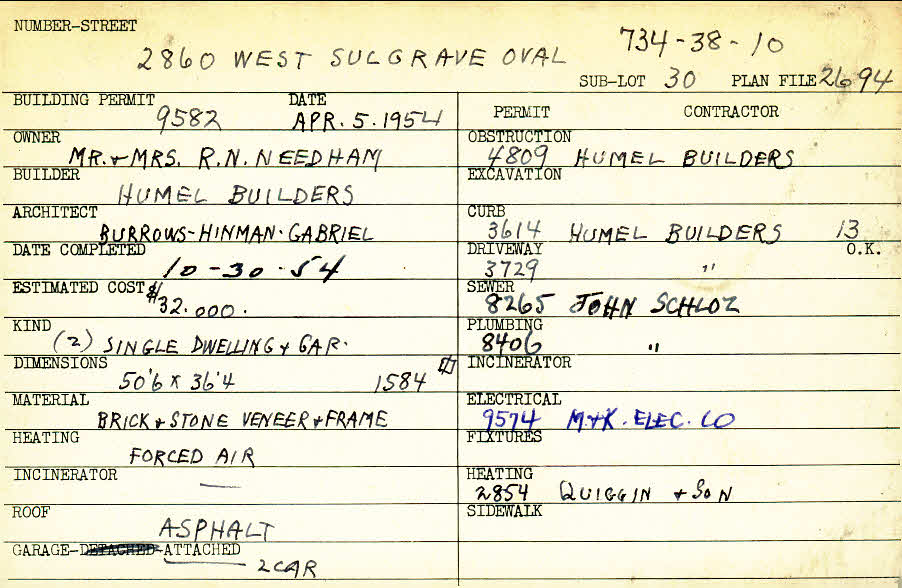 NUMBER-STREET
2860 WEST SULGRAVE OVAL 734-38-10
SUB-LOT 30 PLAN FILE 2694
BUILDING PERMIT DATE
9582 APR. 5. 1954
OWNER
MR. & MRS. R. N. NEEDHAM
BUILDER
HUMEL BUILDERS
ARCHITECT
BURROWS-HINMAN. GABRIEL
DATE COMPLETED
10-30-54
ESTIMATED COST
$32.000.
KIND
(2) SINGLE DWELLING & GAR.
DIMENSIONS
50'6 x 36'4 1584
MATERIAL
BRICK & STONE VENEER & FRAME
HEATING
FORCED AIR
INCINERATOR
—
ROOF
ASPHALT
GARAGE-DETACHED-ATTACHED
2 CAR
PERMIT CONTRACTOR
OBSTRUCTION
4809 HUMEL BUILDERS
EXCAVATION
CURB
3614 HUMEL BUILDERS 13
DRIVEWAY O.K.
3729 "
SEWER
8265 JOHN SCHLOZ
PLUMBING
8406 "
INCINERATOR
ELECTRICAL
9574 M&K. ELEC. CO
FIXTURES
HEATING
2854 QUIGGIN & SON
SIDEWALK